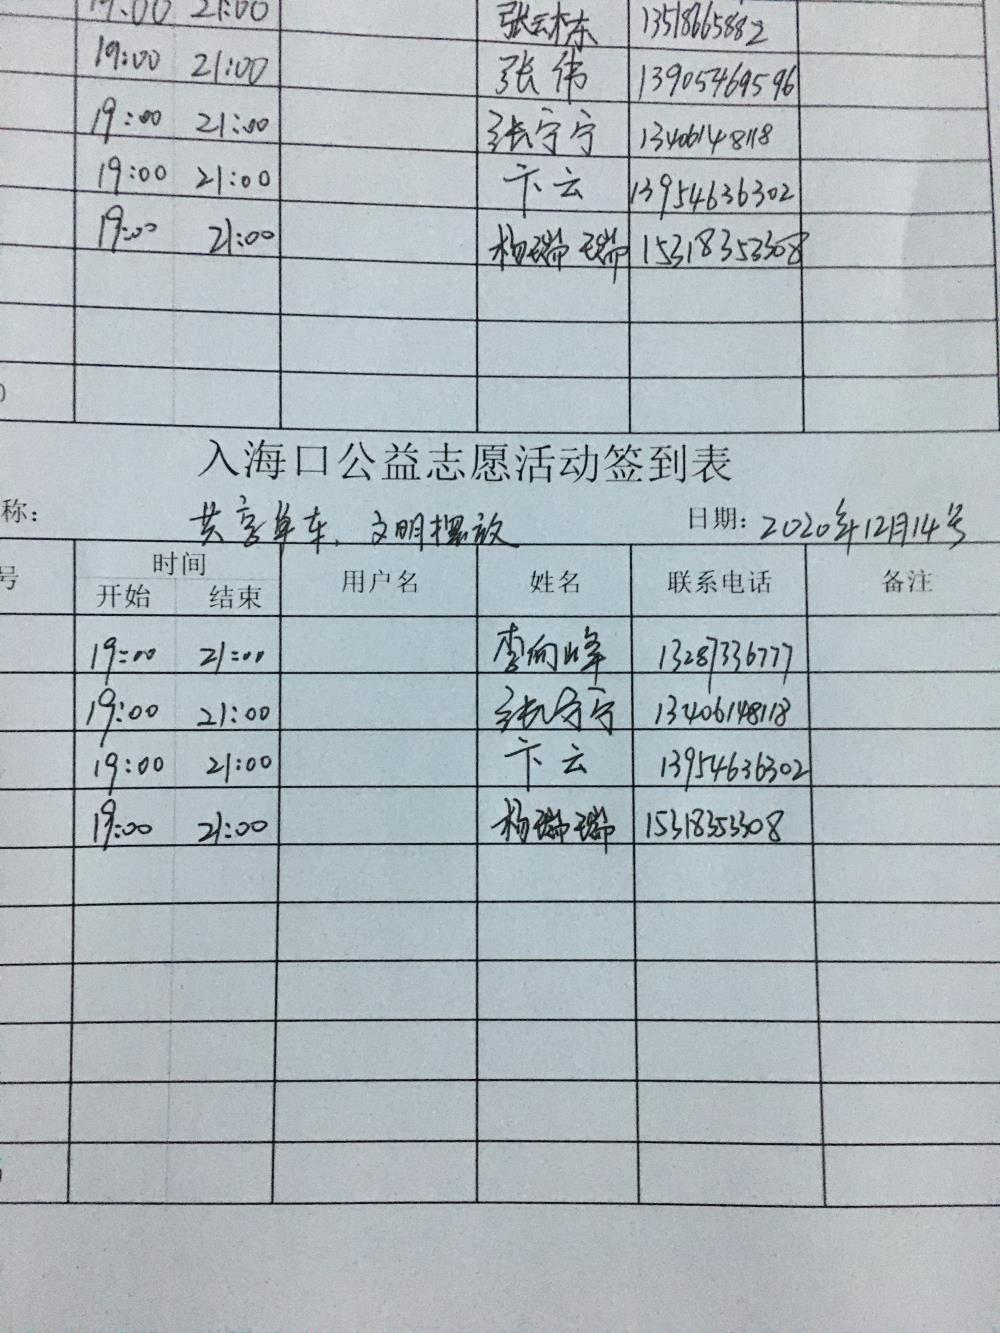 19:00 21:00 张云栋 13518665882
19:00 21:00 张伟 13905469596
19:00 21:00 张宁宁 13406148118
19:00 21:00 卞云 13954636302
19:00 21:00 杨瑞瑞 15318353308
入海口公益志愿活动签到表
称: 共享单车、文明摆放 日期: 2020年12月14号
号 时间 用户名 姓名 联系电话 备注
开始 结束
19:00 21:00 李向峰 13287336777
19:00 21:00 张宁宁 13406148118
19:00 21:00 卞云 13954636302
19:00 21:00 杨瑞瑞 15318353308